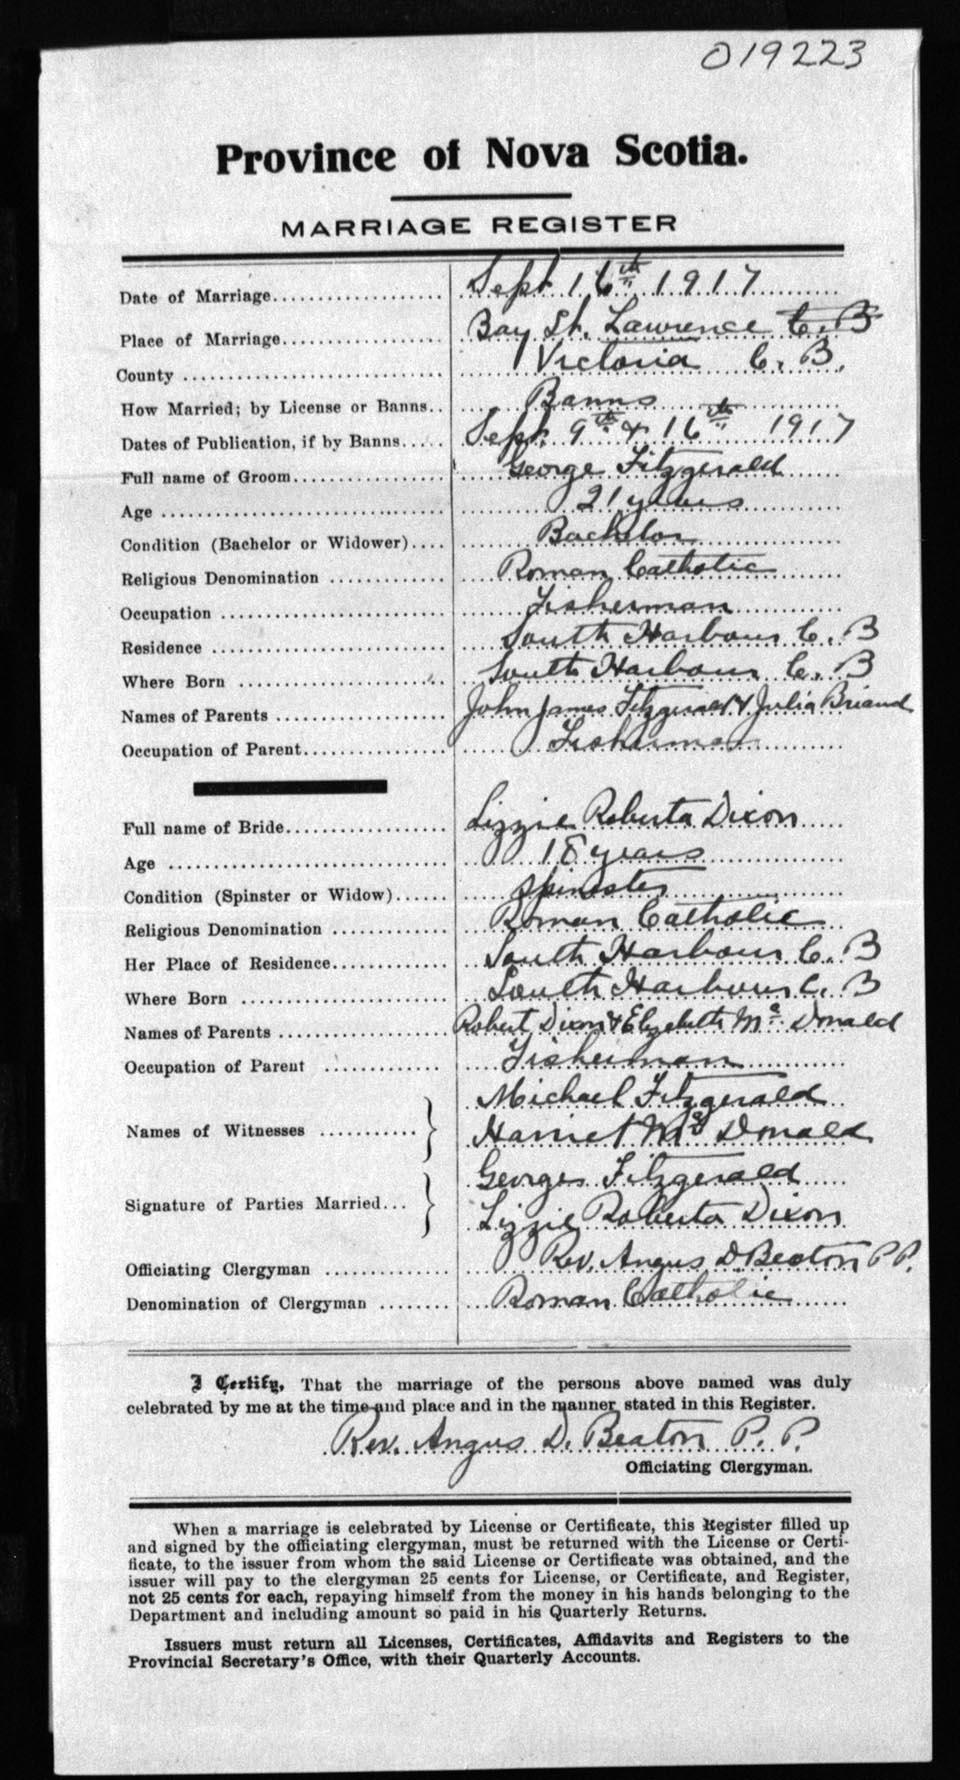 019223
Province of Nova Scotia.
MARRIAGE REGISTER
Date of Marriage.................... Sept 16th 1917
Place of Marriage.................... Bay St. Lawrence C. B
County .................... Victoria C. B.
How Married; by License or Banns.. Banns
Dates of Publication, if by Banns..... Sept. 9th & 16th 1917
Full name of Groom.................... George Fitzgerald
Age .................... 21 years
Condition (Bachelor or Widower).... Bachelor
Religious Denomination .............. Roman Catholic
Occupation .................... Fisherman
Residence .................... South Harbour C. B
Where Born .................... South Harbour C. B
Names of Parents .................... John James Fitzgerald & Julia Briand
Occupation of Parent.................. Fisherman
Full name of Bride.................... Lizzie Roberta Dixon
Age .................... 18 years
Condition (Spinster or Widow)...... Spinster
Religious Denomination .............. Roman Catholic
Her Place of Residence.............. South Harbour C. B
Where Born .................... South Harbour C. B
Names of Parents .................... Robert Dixon & Elizabeth Mc Donald
Occupation of Parent .............. Fisherman
Names of Witnesses ............ } Michael Fitzgerald
Harriet Mc Donald
Signature of Parties Married... } Georges Fitzgerald
Lizzie Roberta Dixon
Officiating Clergyman .............. Rev. Angus D. Beaton P. P.
Denomination of Clergyman ........ Roman Catholic
I Certify, That the marriage of the persons above named was duly
celebrated by me at the time and place and in the manner stated in this Register.
Rev. Angus D. Beaton P. P.
Officiating Clergyman.
When a marriage is celebrated by License or Certificate, this Register filled up
and signed by the officiating clergyman, must be returned with the License or Certi-
ficate, to the issuer from whom the said License or Certificate was obtained, and the
issuer will pay to the clergyman 25 cents for License, or Certificate, and Register,
not 25 cents for each, repaying himself from the money in his hands belonging to the
Department and including amount so paid in his Quarterly Returns.
Issuers must return all Licenses, Certificates, Affidavits and Registers to the
Provincial Secretary's Office, with their Quarterly Accounts.